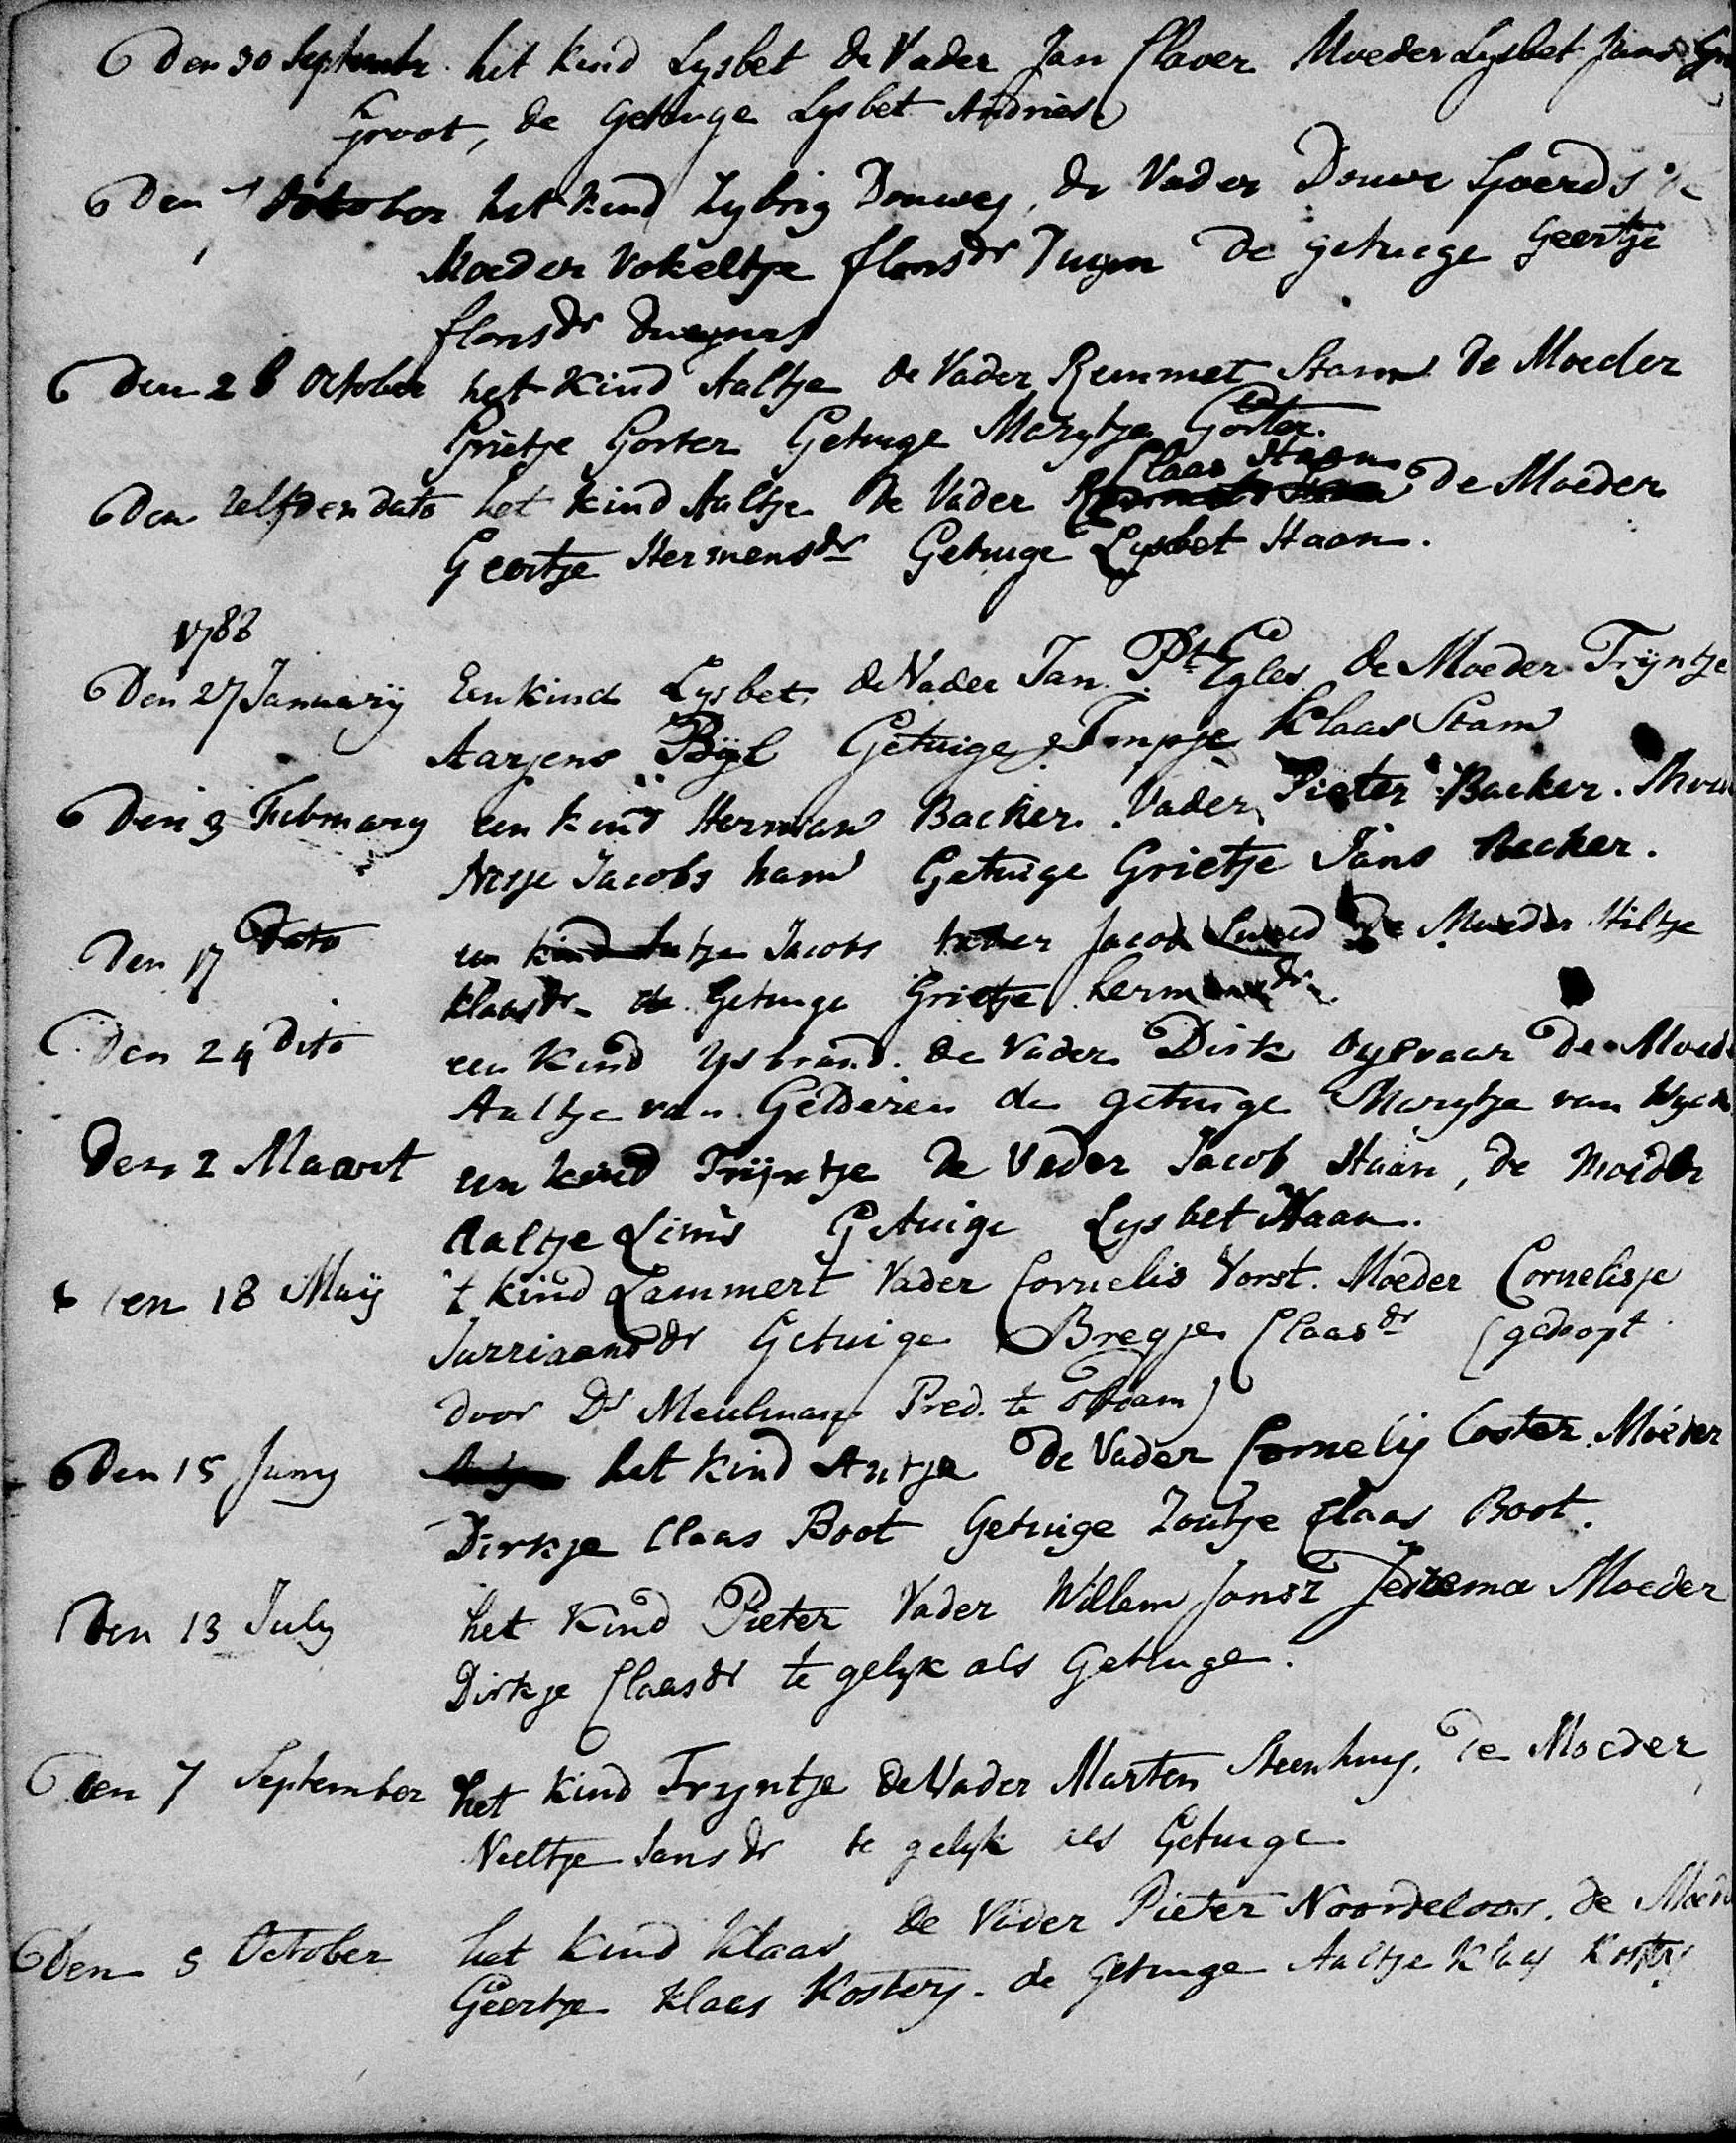 Den 30 Septembr. het kind Lysbet de Vader Jan Claver Moeder Lysbet Jans
Groot, de getuige Lysbet Andries
Den 7 October het kind Zybrig Douwes, de Vader Douwe Sjoerds de
Moeder Vokeltje flonsdr Duym de getuige Geertje
flonsdr
Den 28 October het kind Aaltje de Vader Remmet Stam de Moeder
Grietje Gorter Getuige Marytje Gorter.
Claas Haan
Den zelfden dato het kind Aaltje de Vader de Moeder
Geertje Hermensdr Getuige Lysbet Haan.
1788
Den 27 Januarij Een kind Lysbet de Vader Jan Pt. Egles de Moeder Trijntje
Aarjens Bijl Getuige Impje Klaas Stam
Den 3 February een kind Herman Backer. Vader Pieter Backer.
Nesje Jacobs ham Getuige Grietje Jans Becker.
Den 17 Dato een kind Jacobs Vader Jacob de Moeder Hiltje
Klaasdr de Getuige Grietje
Den 24 Dito een kind Ysbrand de Vader Dirk Oyevaar de Moede
Aaltje van Gelderen de getuige Marytje van
Den 2 Maart een kind Trijntje de Vader Jacob Haan, de moeder
Aaltje Lins Getuige Lysbet Haan.
Den 18 Maij 't kind Lammert Vader Cornelis Vorst. Moeder Cornelisje
Jurriaansdr Getuige Bregje Claasdr (gedoopt
door Ds Meulman Pred. te Opdam)
Den 15 Juny het kind Antje de Vader Cornelis Coster Moeder
Dirkje Claas Boot Getuige Zoutje Claas Boot.
Den 13 July het kind Pieter Vader Willem Jansz Jedema Moeder
Dirkje Claasdr te gelyk als Getuige.
Den 7 September het kind Tryntje de Vader Marten Steenhuys, de Moeder
Neeltje Jansdr te gelyk als Getuige
Den 5 October het kind Klaas de Vader Pieter Noordeloos. de Moede
Geertje Klaas Kosters. de getuige Aaltje Klaas Kosters